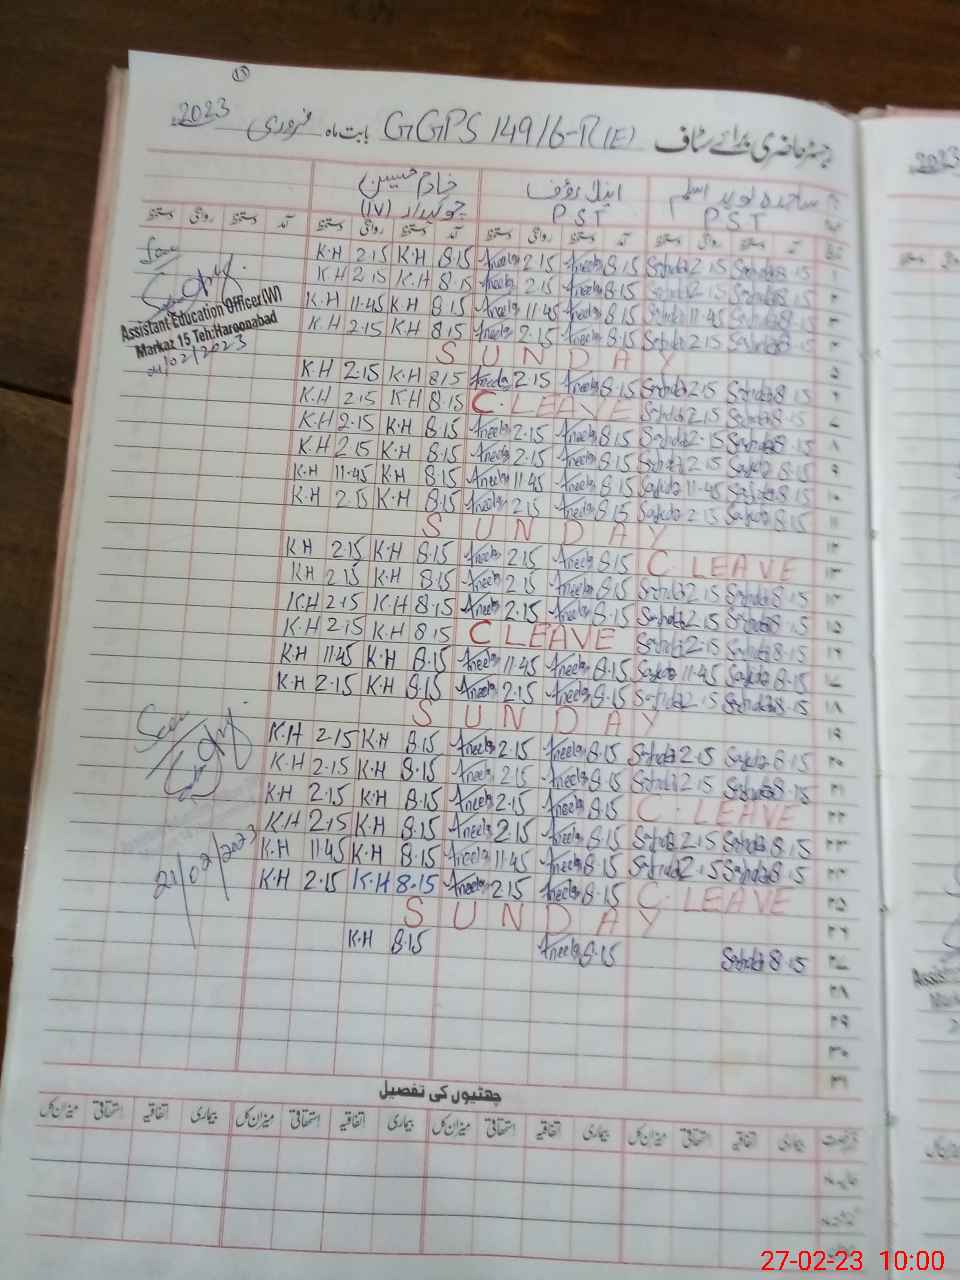 ۱۵
رجسٹر حاضری برائے سٹاف GGPS 149/6-R(E) بابت ماہ فروری 2023
ساجدہ نوید اسلم خادم حسین
PST PST چوکیدار (IV)
آمد دستخط روانگی دستخط آمد دستخط روانگی دستخط آمد دستخط روانگی دستخط آمد دستخط روانگی دستخط
K.H 2.15 K.H 8.15 Aneela 2.15 Aneela 8.15 Sajida 2.15 Sajida 8.15 ۱
K.H 2.15 K.H 8.15 Aneela 2.15 Aneela 8.15 Sajida 2.15 Sajida 8.15 ۲
K.H 11.45 K.H 8.15 Aneela 11.45 Aneela 8.15 Sajida 11.45 Sajida 8.15 ۳
K.H 2.15 K.H 8.15 Aneela 2.15 Aneela 8.15 Sajida 2.15 Sajida 8.15 ۴
Assistant Education Officer(W)
Markaz 15 Teh:Haroonabad
04/02/2023
SUNDAY ۵
K.H 2.15 K.H 8.15 Aneela 2.15 Aneela 8.15 Sajida 2.15 Sajida 8.15 ۶
K.H 2.15 K.H 8.15 C.LEAVE Sajida 2.15 Sajida 8.15 ۷
K.H 2.15 K.H 8.15 Aneela 2.15 Aneela 8.15 Sajida 2.15 Sajida 8.15 ۸
K.H 2.15 K.H 8.15 Aneela 2.15 Aneela 8.15 Sajida 2.15 Sajida 8.15 ۹
K.H 11.45 K.H 8.15 Aneela 11.45 Aneela 8.15 Sajida 11.45 Sajida 8.15 ۱۰
K.H 2.15 K.H 8.15 Aneela 2.15 Aneela 8.15 Sajida 2.15 Sajida 8.15 ۱۱
SUNDAY ۱۲
K.H 2.15 K.H 8.15 Aneela 2.15 Aneela 8.15 C.LEAVE ۱۳
K.H 2.15 K.H 8.15 Aneela 2.15 Aneela 8.15 Sajida 2.15 Sajida 8.15 ۱۴
K.H 2.15 K.H 8.15 Aneela 2.15 Aneela 8.15 Sajida 2.15 Sajida 8.15 ۱۵
K.H 2.15 K.H 8.15 C LEAVE Sajida 2.15 Sajida 8.15 ۱۶
K.H 11.45 K.H 8.15 Aneela 11.45 Aneela 8.15 Sajida 11.45 Sajida 8.15 ۱۷
K.H 2.15 K.H 8.15 Aneela 2.15 Aneela 8.15 Sajida 2.15 Sajida 8.15 ۱۸
SUNDAY ۱۹
K.H 2.15 K.H 8.15 Aneela 2.15 Aneela 8.15 Sajida 2.15 Sajida 8.15 ۲۰
K.H 2.15 K.H 8.15 Aneela 2.15 Aneela 8.15 Sajida 2.15 Sajida 8.15 ۲۱
K.H 2.15 K.H 8.15 Aneela 2.15 Aneela 8.15 C.LEAVE ۲۲
K.H 2.15 K.H 8.15 Aneela 2.15 Aneela 8.15 Sajida 2.15 Sajida 8.15 ۲۳
21/02/2023
K.H 11.45 K.H 8.15 Aneela 11.45 Aneela 8.15 Sajida 2.15 Sajida 8.15 ۲۴
K.H 2.15 K.H 8.15 Aneela 2.15 Aneela 8.15 C.LEAVE ۲۵
SUNDAY ۲۶
K.H 8.15 Aneela 8.15 Sajida 8.15 ۲۷
۲۸
۲۹
۳۰
۳۱
چھٹیوں کی تفصیل
بیماری اتفاقیہ استحقاقی میزان کل بیماری اتفاقیہ استحقاقی میزان کل بیماری اتفاقیہ استحقاقی میزان کل بیماری اتفاقیہ استحقاقی میزان کل
2023
27-02-23 10:00